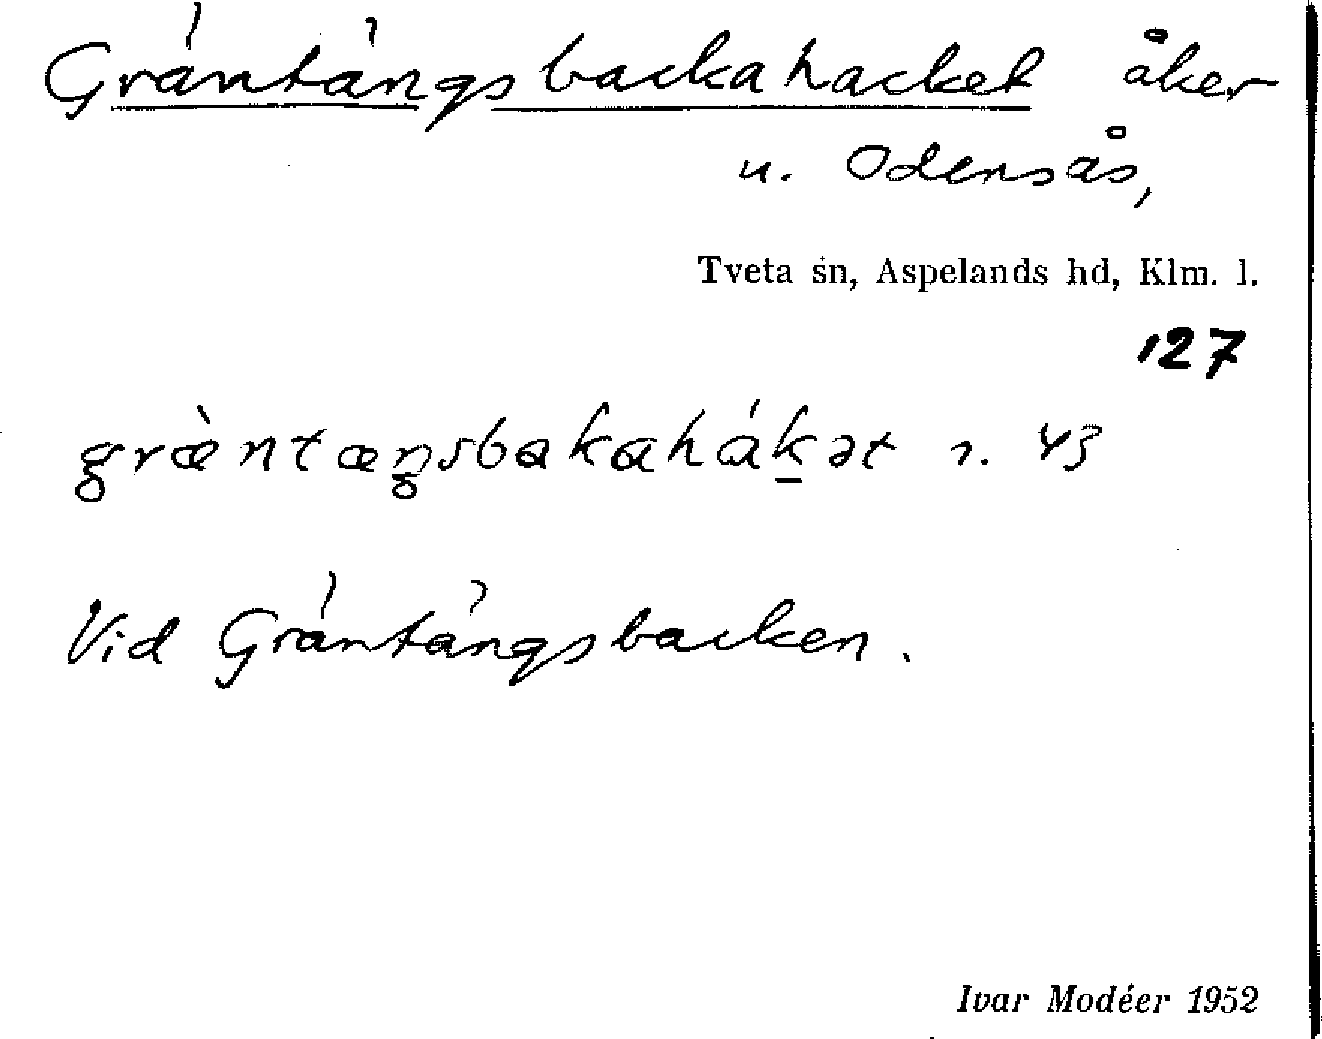 Gräntängsbackahacket åker
u. Odensås,
Tveta sn, Aspelands hd, Klm. l.
127
græ̀ntæŋsbakahák̲ət 1. 43
Vid Gräntängsbacken.
Ivar Modéer 1952